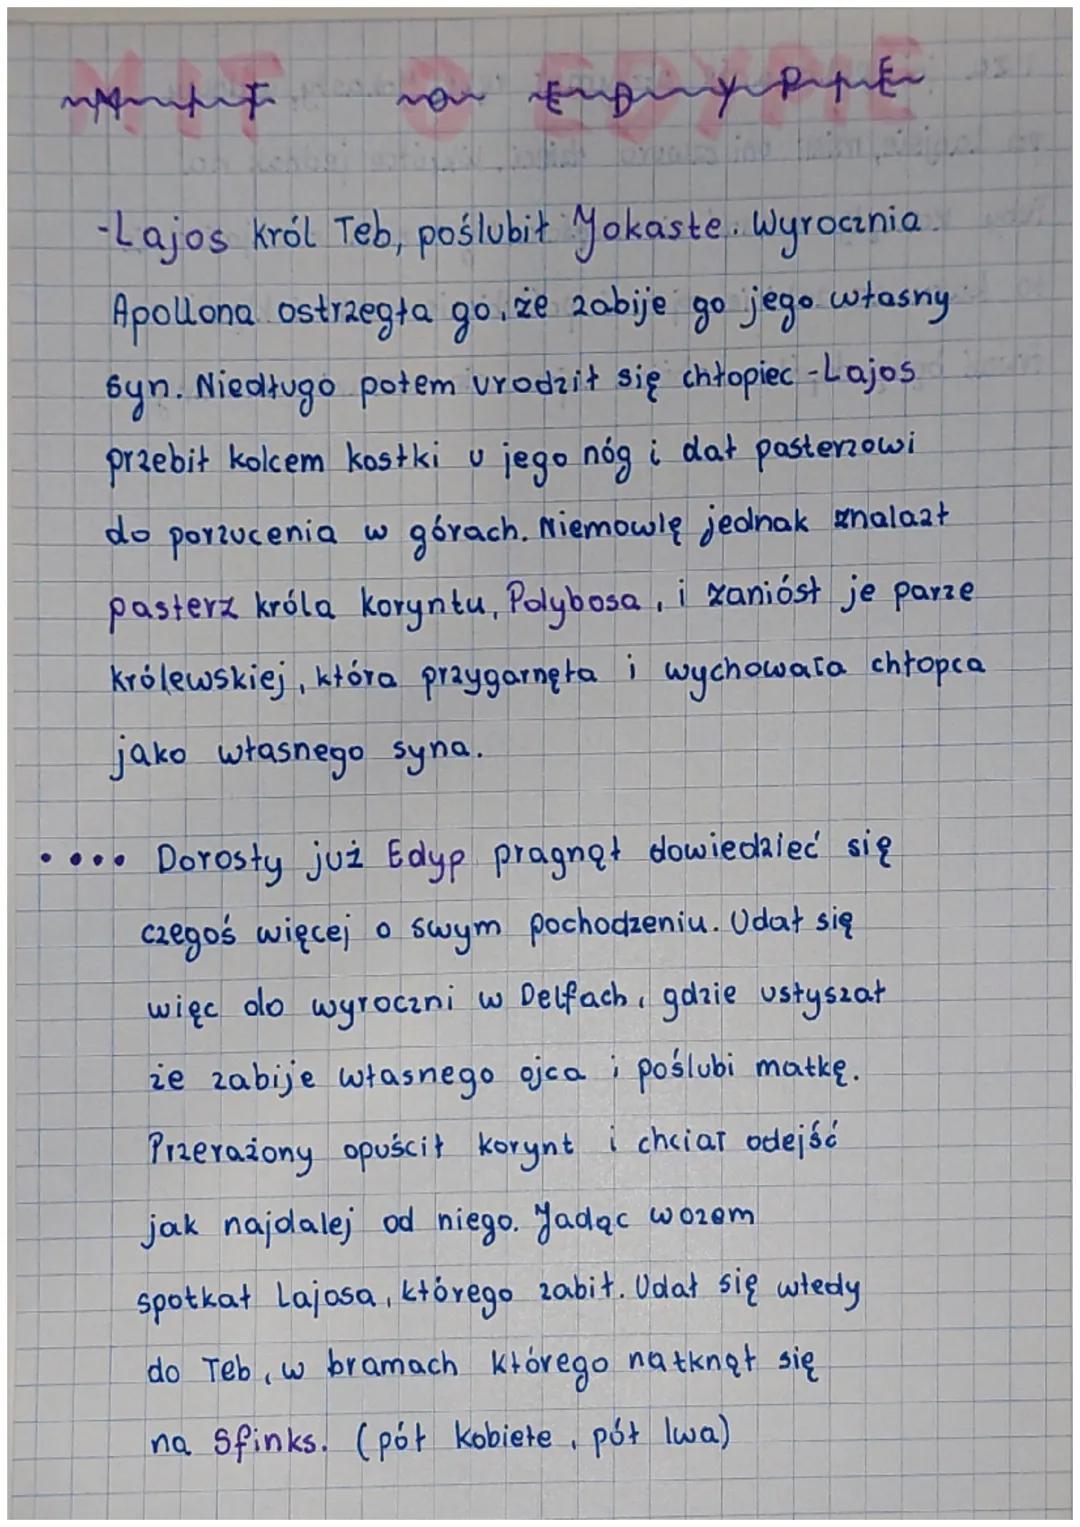 MIT O EDYPIE
-Lajos król Teb, poślubił Jokaste. Wyrocznia
Apollona ostrzegła go, że zabije go jego własny
syn. Niedługo potem urodził się chłopiec - Lajos
przebił kolcem kostki u jego nóg i dał pasterzowi
do porzucenia w górach. Niemowlę jednak znalazł
pasterz króla Koryntu, Polybosa, i zaniósł je parze
królewskiej, która przygarnęła i wychowała chłopca
jako własnego syna.
•••• Dorosły już Edyp pragnął dowiedzieć się
czegoś więcej o swym pochodzeniu. Udał się
więc do wyroczni w Delfach, gdzie usłyszał
że zabije własnego ojca i poślubi matkę.
Przerażony opuścił Korynt i chciał odejść
jak najdalej od niego. Jadąc wozem
spotkał Lajosa, którego zabił. Udał się wtedy
do Teb, w bramach którego natknął się
na Sfinks. (pół kobiete, pół lwa)